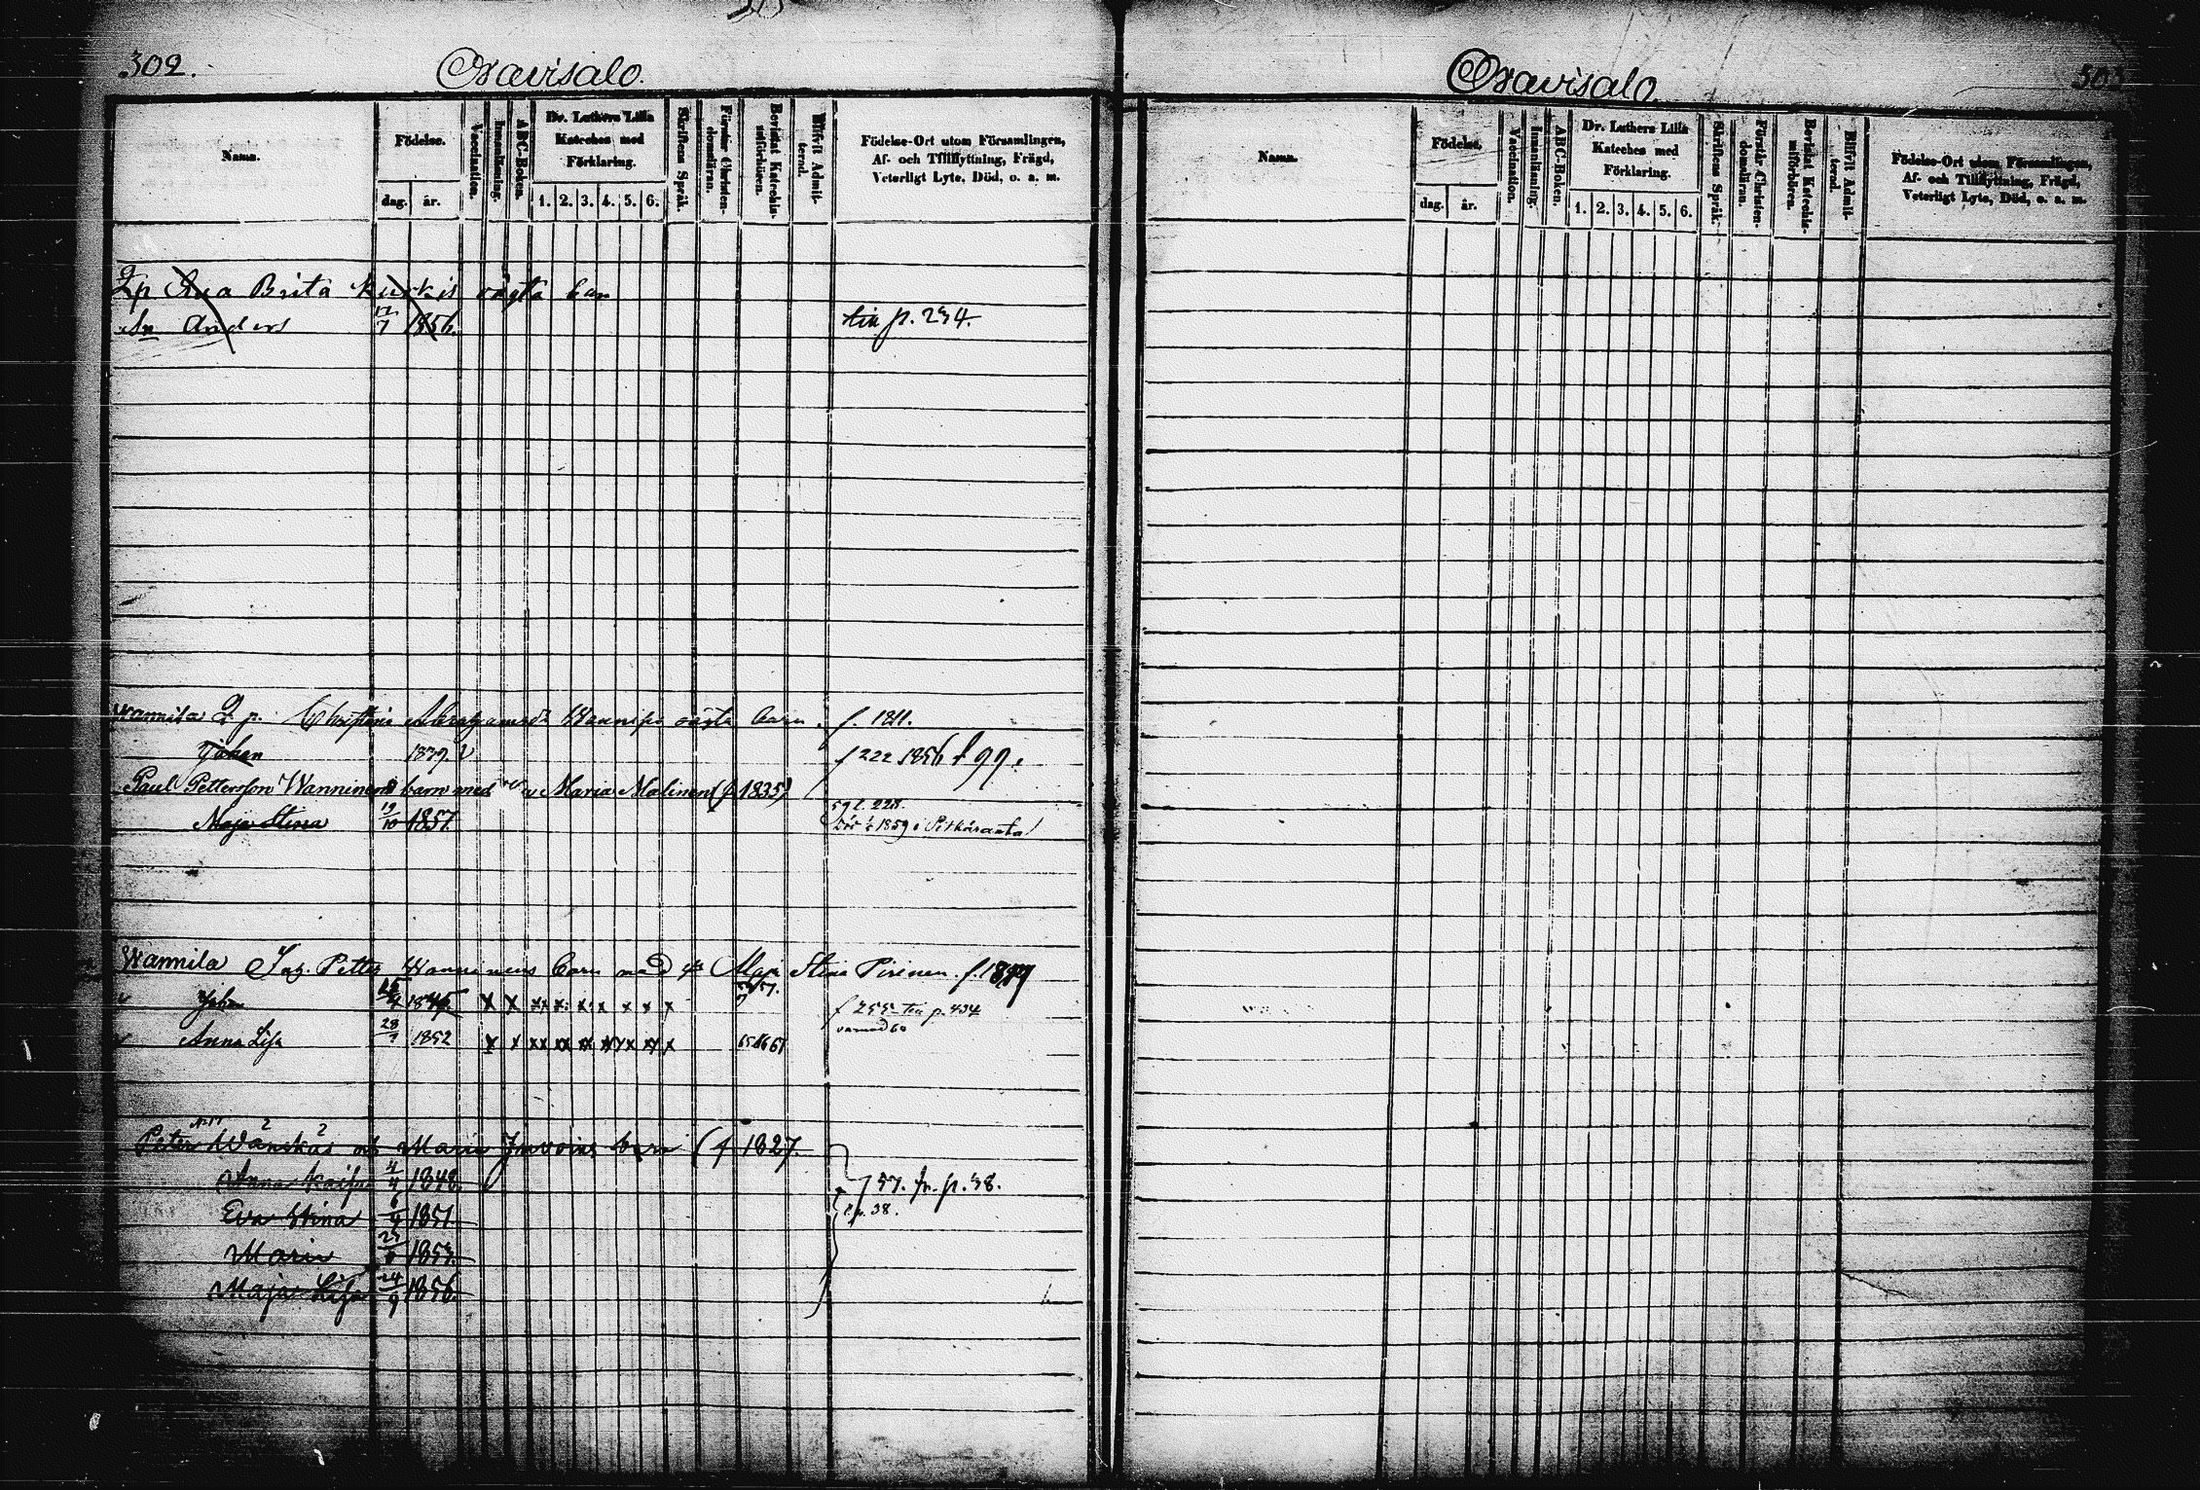 302.
Oravisalo.
Namn.
Födelse.
dag.
år.
Vaccination.
Innanläsning.
ABC-Boken.
Dr. Luthers Lilla
Kateches med
Förklaring.
1. 2. 3. 4. 5. 6.
Skriftens Språk.
Förstår Christen-
domsläran.
Bevistat Katechis-
miförhören.
Blifvit Admit-
terad.
Födelse-Ort utom Församlingen,
Af- och Tillflyttning, Frägd,
Veterligt Lyte, Död, o. a. m.
Qp Ana Brita kuskis oägta
Sn Anders 7 1856. till p. 234.
Wannila Q p. Christina Abrahamsd: oägta barn. f. 1811.
Johan 1839. v f 222 1856 f 99.
Paul Pettersson Wanninens barn med Maria Malinen (f 1835)
Maja Stina 19/10 1857. 1859 i Pitkäranta
Wannila Petter Wanninens barn med Maja Stina Pirinen. f.
Johan x x xx x x x x x f 255 till p. 434
Anna Lisa 28 1852 x x xx xx xx x 65 66 67
Peter Wänskäs och Maria barn (f 1827.
Anna Kaisa 4/4 1848. 57. fr. p. 38.
Eva Stina 6/4 1851. p. 38.
Maria 1853.
Maja Lisa 24/9 1856.
Oravisalo
303
Namn.
Födelse.
dag.
år.
Vaccination.
Innanläsning.
ABC-Boken.
Dr. Luthers Lilla
Kateches med
Förklaring.
1. 2. 3. 4. 5. 6.
Skriftens Språk.
Förstår Christen-
domsläran.
Bevistat Katechis-
miförhören.
Blifvit Admit-
terad.
Födelse-Ort utom Församlingen,
Af- och Tillflyttning, Frägd,
Veterligt Lyte, Död, o. a. m.